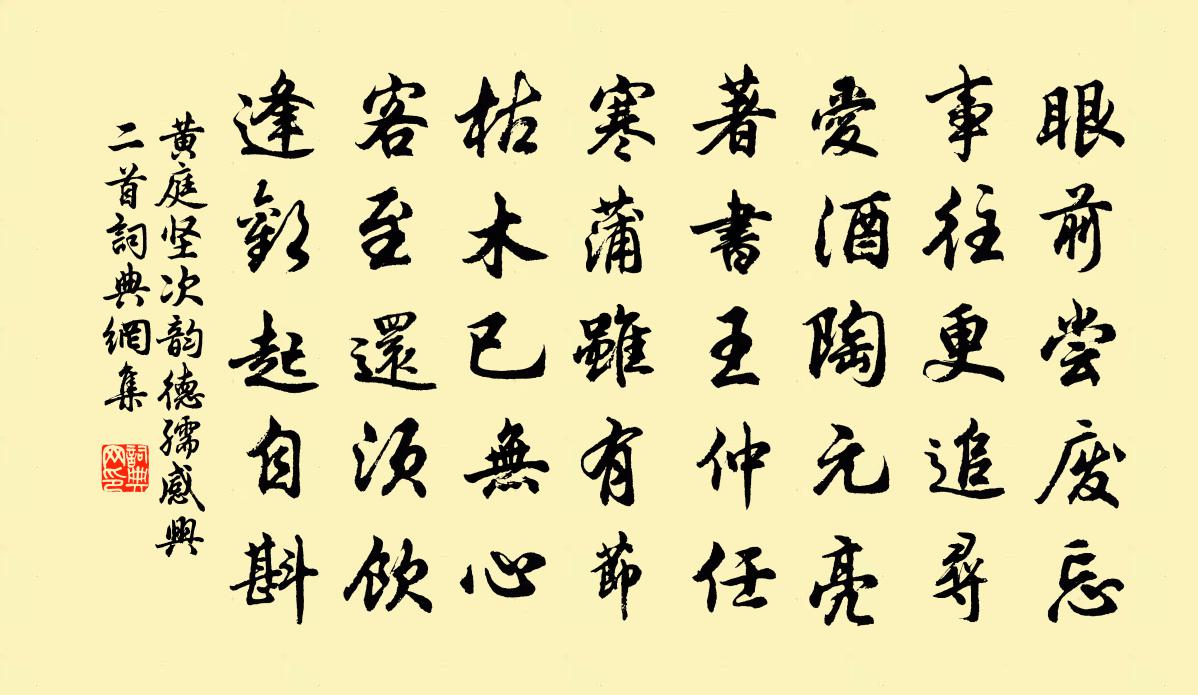 眼前尝废忘
事往更追尋
愛酒陶元亮
著書王仲任
寒蒲雖有節
枯木已無心
客至還须飲
逢歡起自斟
黄庭坚次韵德孺感興
二首詞典網集
詞典
网印